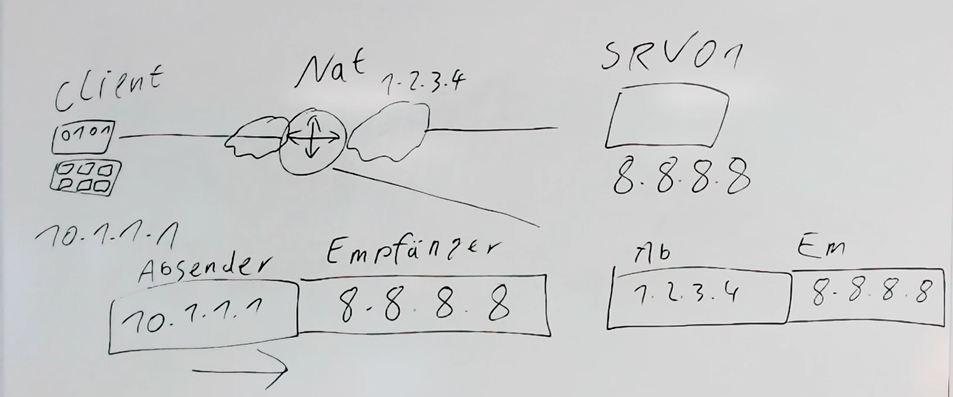 Client
Nat
1.2.3.4
SRV01
0101
8.8.8.8
10.1.1.1
Absender
Empfänger
10.1.1.1
8.8.8.8
Ab
Em
1.2.3.4
8.8.8.8